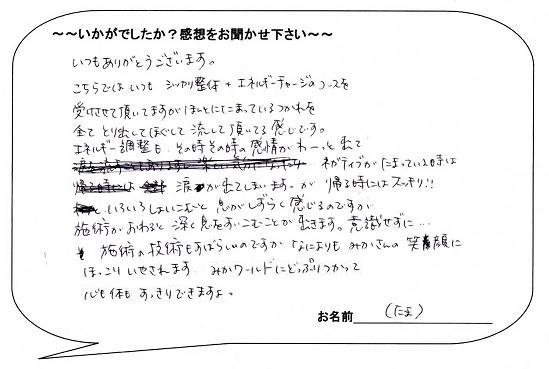 ~~いかがでしたか？感想をお聞かせ下さい~~
いつもありがとうございます。
こちらでは いつも シッカリ整体 + エネルギーチャージのコースを
受けさせて頂いてますが ほんとにたまっているつかれを
全て とり出して ほぐして 流して頂いてる感じです。
エネルギー調整も、その時その時の感情が わーっと出て
ネガティブが たまっている時は
涙が出てしまいます。が 帰る時にはスッキリ!!
いろいろしょいこむと 息がしずらく感じるのですが
施術がおわると 深く息をすいこむことが出きます。意識せずに…
施術の技術もすばらしいのですが なによりも みかさんの 笑顔に
ほっこり いやされます みかワールドにどっぷりつかって
心も体も すっきりできますよ。
お名前 (たま)